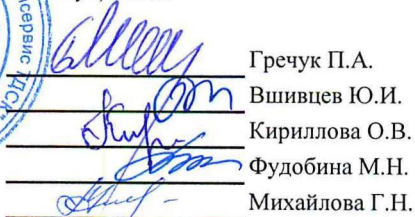 сервис ТДСК"
Гречук П.А.
Вшивцев Ю.И.
Кириллова О.В.
Фудобина М.Н.
Михайлова Г.Н.